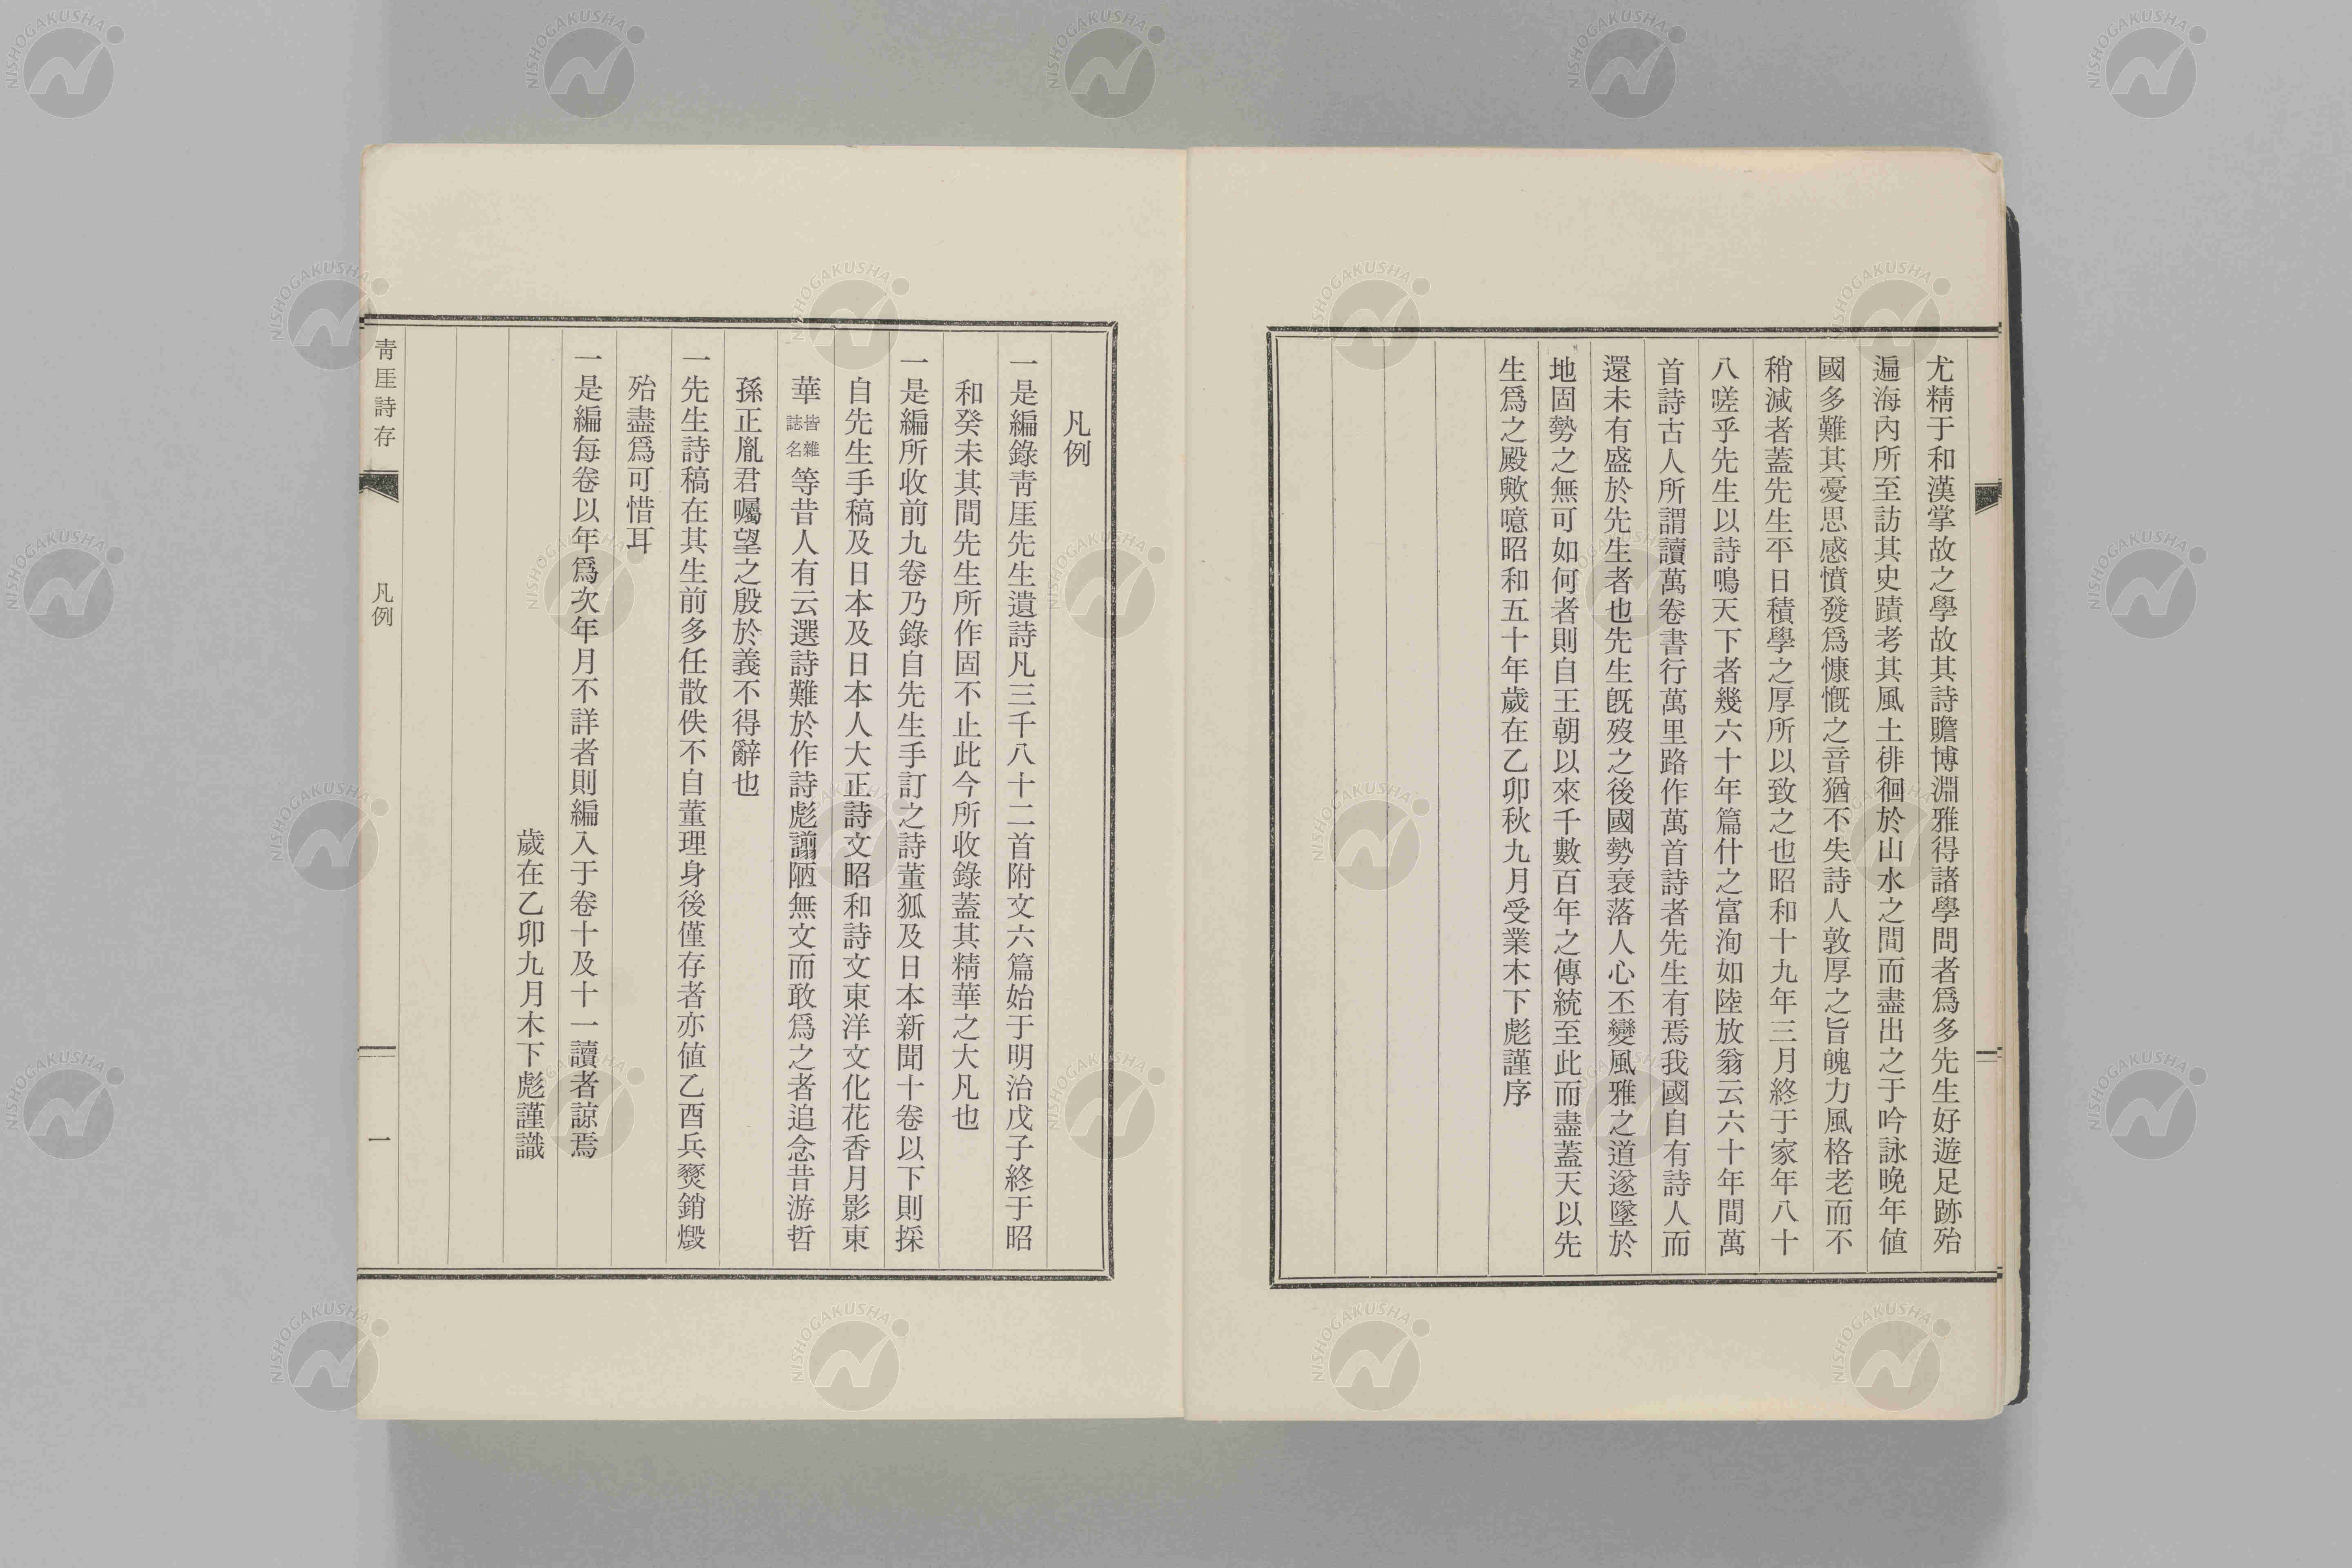 尤精于和漢掌故之學故其詩贍博淵雅得諸學問者爲多先生好遊足跡殆
遍海內所至訪其史蹟考其風土徘徊於山水之間而盡出之于吟詠晚年値
國多難其憂思感憤發爲慷慨之音猶不失詩人敦厚之旨魄力風格老而不
稍減者蓋先生平日積學之厚所以致之也昭和十九年三月終于家年八十
八嗟乎先生以詩鳴天下者幾六十年篇什之富洵如陸放翁云六十年間萬
首詩古人所謂讀萬卷書行萬里路作萬首詩者先生有焉我國自有詩人而
還未有盛於先生者也先生既歿之後國勢衰落人心丕變風雅之道遂墜於
地固勢之無可如何者則自王朝以來千數百年之傳統至此而盡蓋天以先
生爲之殿歟噫昭和五十年歲在乙卯秋九月受業木下彪謹序
凡例
一是編錄靑厓先生遺詩凡三千八十二首附文六篇始于明治戊子終于昭
和癸未其間先生所作固不止此今所收錄蓋其精華之大凡也
一是編所收前九卷乃錄自先生手訂之詩董狐及日本新聞十卷以下則採
自先生手稿及日本及日本人大正詩文昭和詩文東洋文化花香月影東
華皆雜誌名等昔人有云選詩難於作詩彪譾陋無文而敢爲之者追念昔游哲
孫正胤君囑望之殷於義不得辭也
一先生詩稿在其生前多任散佚不自董理身後僅存者亦値乙酉兵燹銷燬
殆盡爲可惜耳
一是編每卷以年爲次年月不詳者則編入于卷十及十一讀者諒焉
歲在乙卯九月木下彪謹識
靑厓詩存
凡例
一
NISHOGAKUSHA